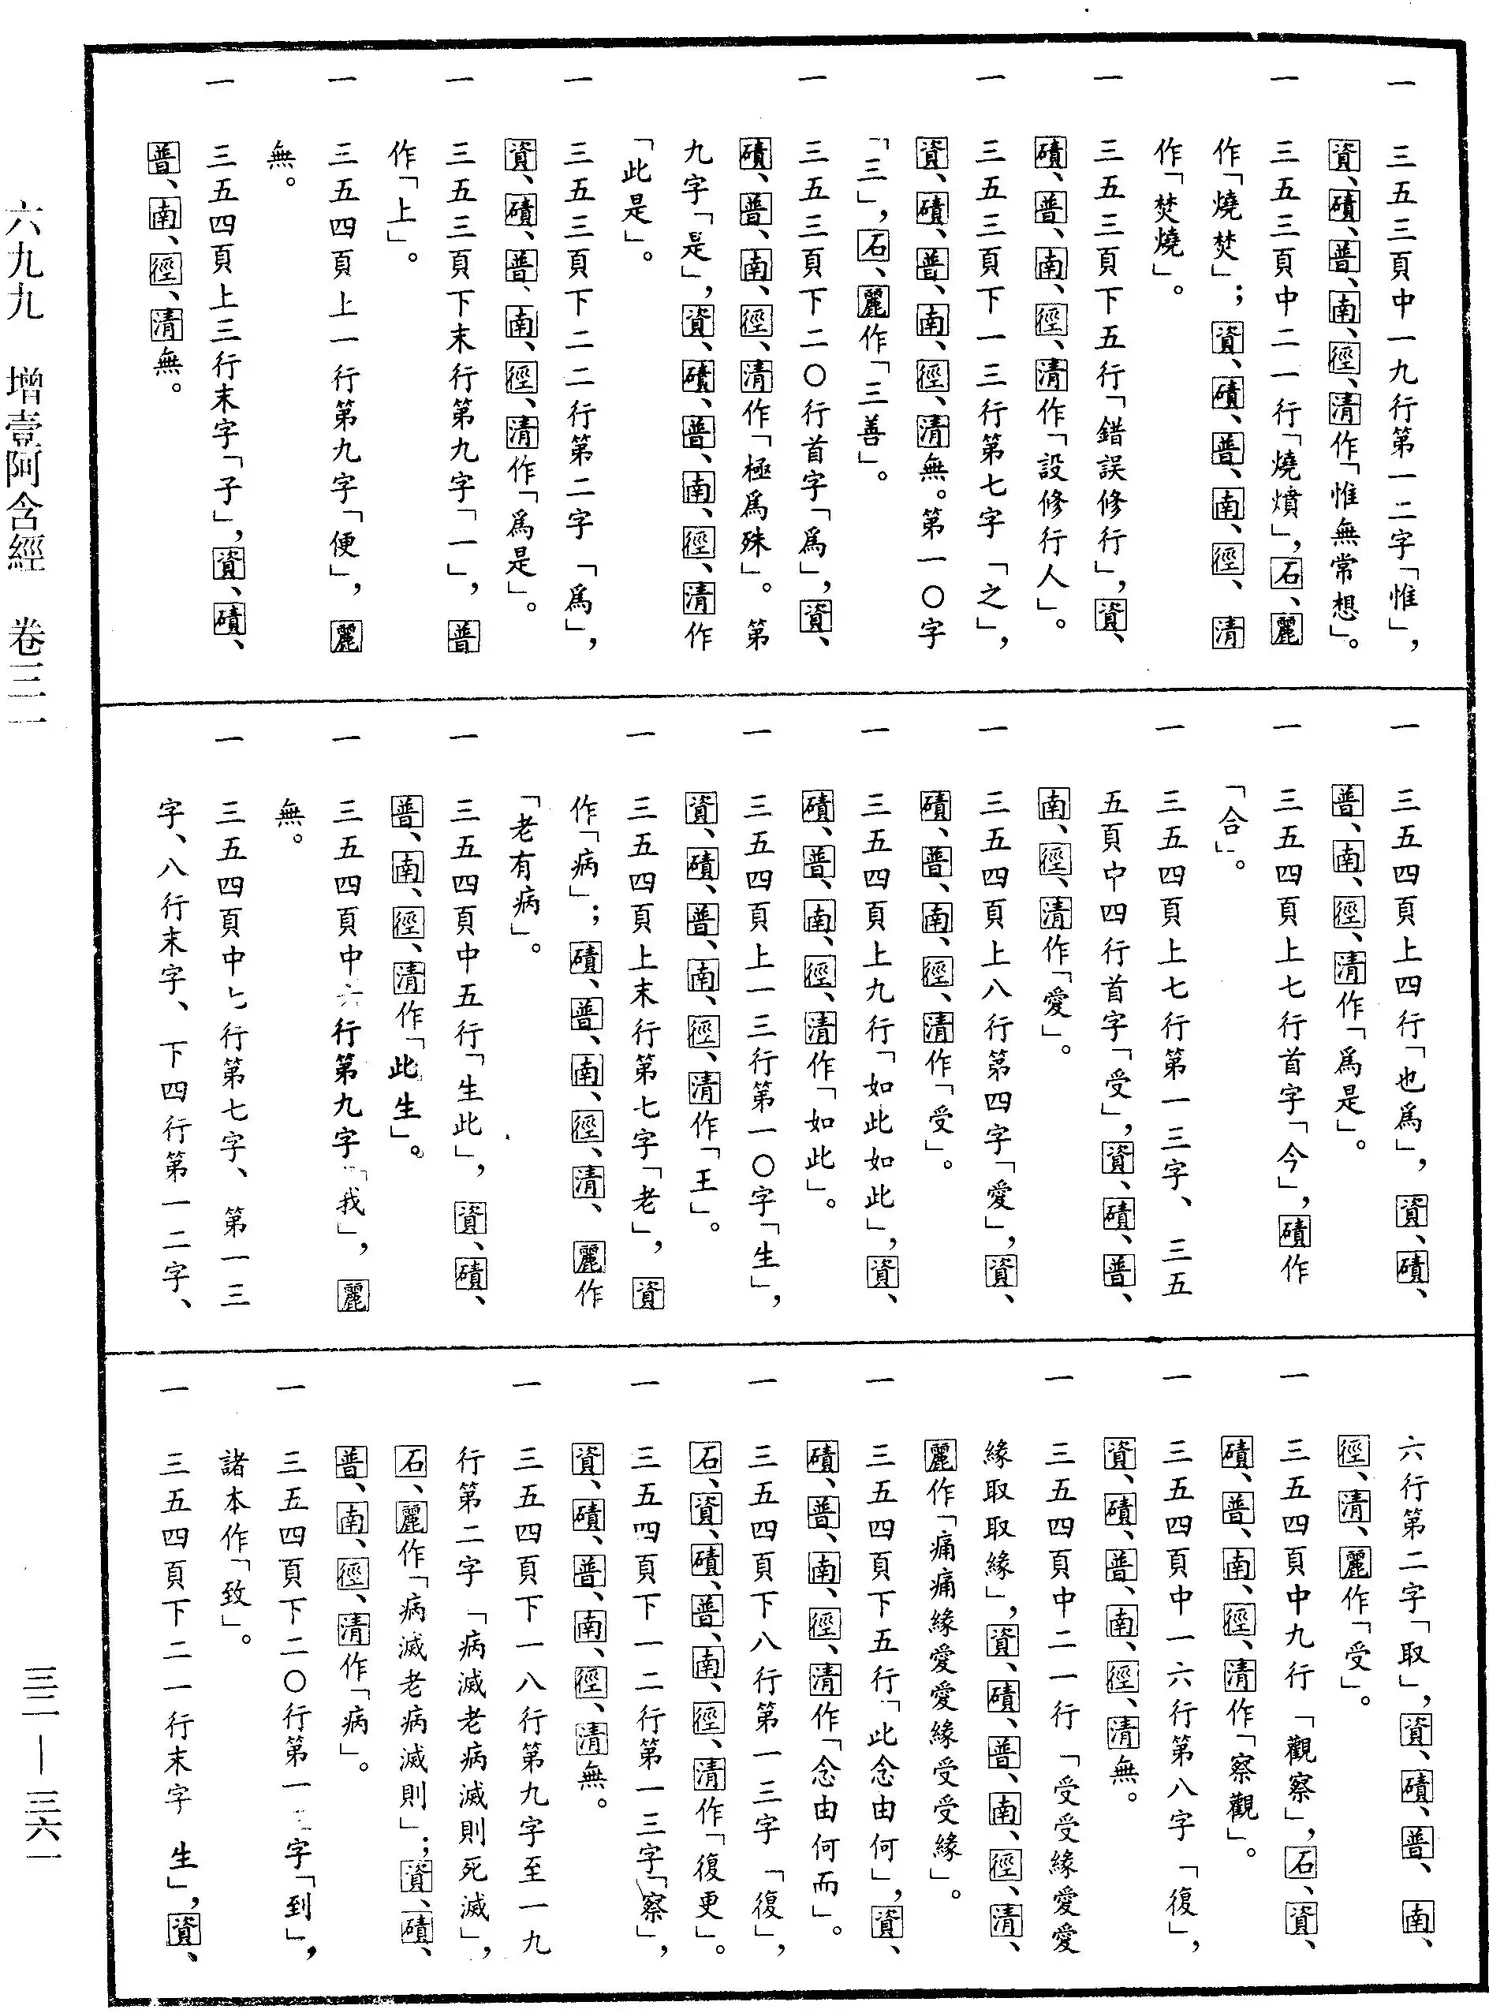 一　三五三頁中一九行第一二字「惟」，
資、磧、普、南、徑、清作「惟無常想」。
一　三五三頁中二一行「燒燌」，石、麗
作「燒焚」；資、磧、普、南、徑、清
作「焚燒」。
一　三五三頁下五行「錯誤修行」，資、
磧、普、南、徑、清作「設修行人」。
一　三五三頁下一三行第七字「之」，
資、磧、普、南、徑、清無。第一〇字
「三」，石、麗作「三善」。
一　三五三頁下二〇行首字「爲」，資、
磧、普、南、徑、清作「極爲殊」。第
九字「是」，資、磧、普、南、徑、清作
「此是」。
一　三五三頁下二二行第二字「爲」，
資、磧、普、南、徑、清作「爲是」。
一　三五三頁下末行第九字「一」，普
作「上」。
一　三五四頁上一行第九字「便」，麗
無。
一　三五四頁上三行末字「子」，資、磧、
普、南、徑、清無。
一　三五四頁上四行「也爲」，資、磧、
普、南、徑、清作「爲是」。
一　三五四頁上七行首字「今」，磧作
「合」。
一　三五四頁上七行第一三字、三五
五頁中四行首字「受」，資、磧、普、
南、徑、清作「愛」。
一　三五四頁上八行第四字「愛」，資、
磧、普、南、徑、清作「受」。
一　三五四頁上九行「如此如此」，資、
磧、普、南、徑、清作「如此」。
一　三五四頁上一三行第一〇字「生」，
資、磧、普、南、徑、清作「王」。
一　三五四頁上末行第七字「老」，資
作「病」；磧、普、南、徑、清、麗作
「老有病」。
一　三五四頁中五行「生此」，資、磧、
普、南、徑、清作「此生」。
一　三五四頁中六行第九字「我」，麗
無。
一　三五四頁中七行第七字、第一三
字、八行末字、下四行第一二字、
六行第二字「取」，資、磧、普、南、
徑、清、麗作「受」。
一　三五四頁中九行「觀察」，石、資、
磧、普、南、徑、清作「察觀」。
一　三五四頁中一六行第八字「復」，
資、磧、普、南、徑、清無。
一　三五四頁中二一行「受受緣愛愛
緣取取緣」，資、磧、普、南、徑、清、
麗作「痛痛緣愛愛緣受受緣」。
一　三五四頁下五行「此念由何」，資、
磧、普、南、徑、清作「念由何而」。
一　三五四頁下八行第一三字「復」，
石、資、磧、普、南、徑、清作「復更」。
一　三五四頁下一二行第一三字「察」，
資、磧、普、南、徑、清無。
一　三五四頁下一八行第九字至一九
行第二字「病滅老病滅則死滅」，
石、麗作「病滅老病滅則」；資、磧、
普、南、徑、清作「病」。
一　三五四頁下二〇行第一字「到」，
諸本作「致」。
一　三五四頁下二一行末字　生」，資、
六九九　增壹阿含經　卷三一
三二—三六一